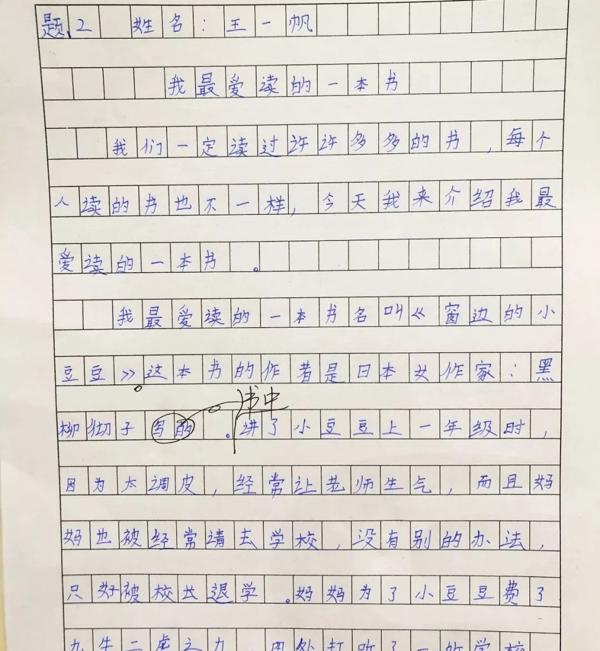 题2 姓名:王一帆
我最爱读的一本书
我们一定读过许许多多的书,每个
人读的书也不一样,今天我来介绍我最
爱读的一本书。
我最爱读的一本书名叫《窗边的小
豆豆》。这本书的作者是日本女作家:黑
书中
柳彻子写的。讲了小豆豆上一年级时,
因为太调皮,经常让老师生气,而且妈
妈也被经常请去学校,没有别的办法,
只好被校长退学。妈妈为了小豆豆费了
九牛二虎之力,四处打听了一所学校